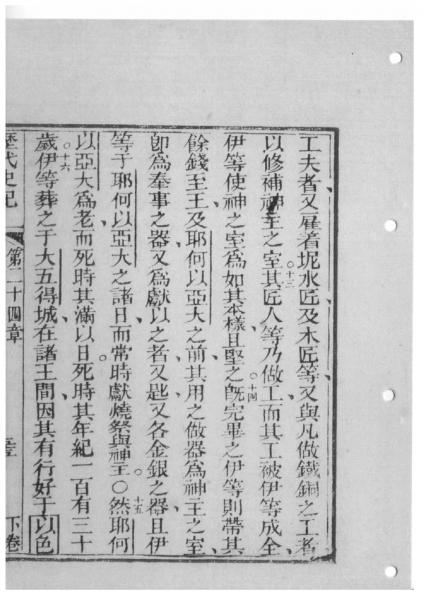 工夫者又雇着坭水匠及木匠等又與凡做鐵銅之工者
以修補神主之室其十三匠人等乃做工而其工被伊等成全
伊等使神之室爲如其本樣且堅之十四既完畢之伊等則帶其
餘錢至王及耶何以亞大之前其用之做器爲神主之室
卽爲奉事之器又爲獻以之者又匙又各金銀之器且伊
等于耶何以亞大之諸日而常時獻燒祭與神主○十五然耶何
以亞大爲老而死時其滿以日死時其年紀一百有三十
歲十六伊等葬之于大五得城在諸王間因其有行好于以色
歷代史紀
第二十四章
下卷